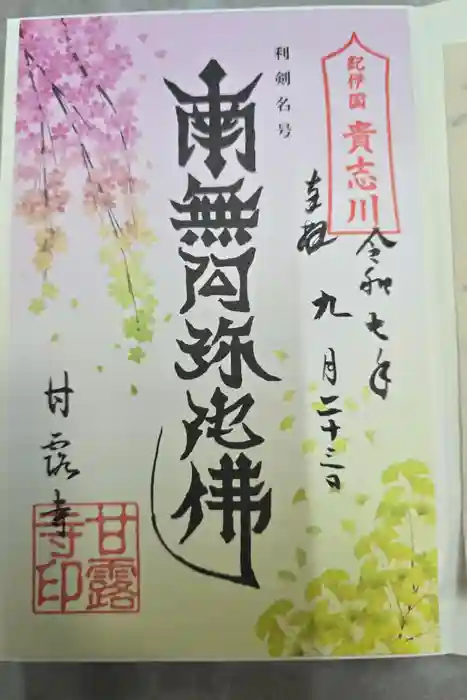 紀伊国 貴志川
令和七年
九月二十三日
奉拝
利剣名号
南無阿弥陀佛
甘露寺
甘露寺印